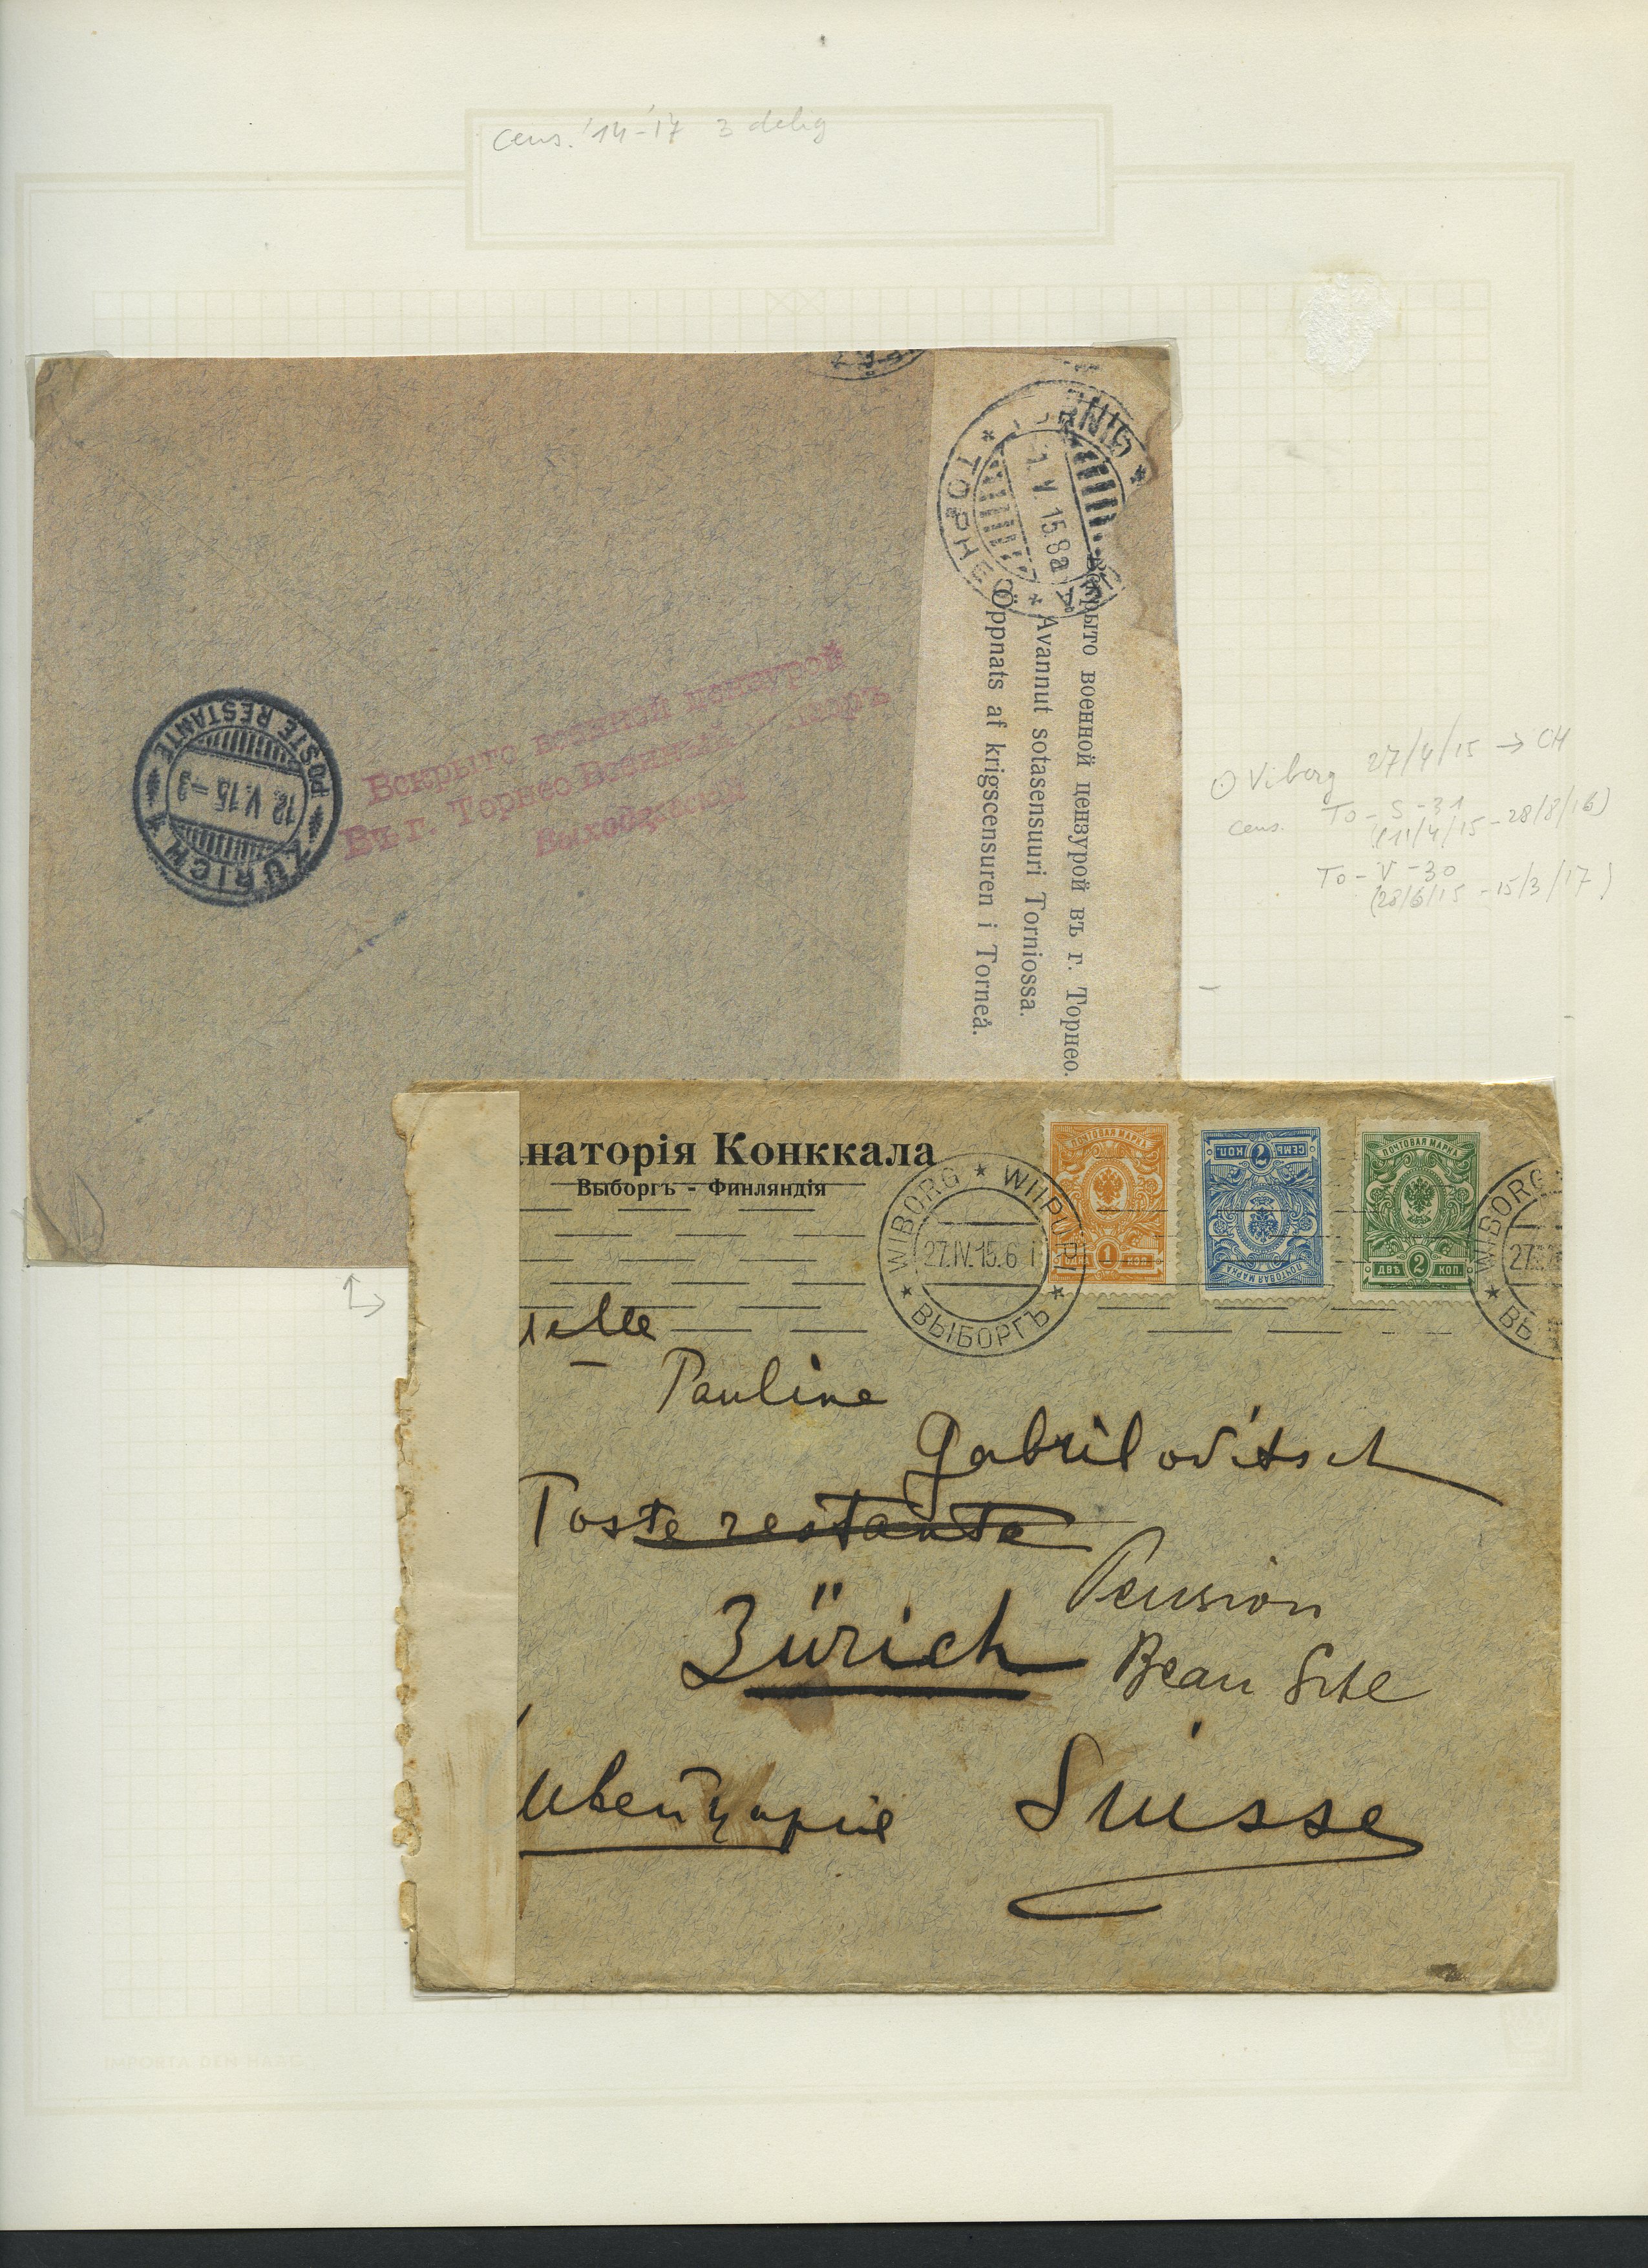 cens. '14-'17 3 delig
TORNIO
ТОРНЕО
1. V. 15.8a
Вскрыто военной цензурой въ г. Торнео.
Avannut sotasensuuri Torniossa.
Öppnats af krigscensuren i Torneå.
Вскрыто военной цензурой
Въ г. Торнео Военный цензоръ
ZÜRICH 1
12. V. 15 - 3
POSTE RESTANTE
⊙ Viborg 27/4/15 → CH
cens. To - S - 31
(11/4/15 - 28/8/16)
To - V - 30
(28/6/15 - 15/3/17)
наторія Конккала
Выборгъ - Финляндія
WIBORG * WIIPURI
27.IV.15.6 i
ВЫБОРГЪ
ПОЧТОВАЯ МАРКА
ОДНА 1 КОП.
СЕМЬ 7 КОП.
ПОЧТОВАЯ МАРКА
ПОЧТОВАЯ МАРКА
ДВѢ 2 КОП.
WIBORG
27
ВЫ
elle
Pauline
Gabrilovitsch
Poste restante
Pension
Zürich
Beau Site
Швейцарiя Suisse
IMPORTA DEN HAAG